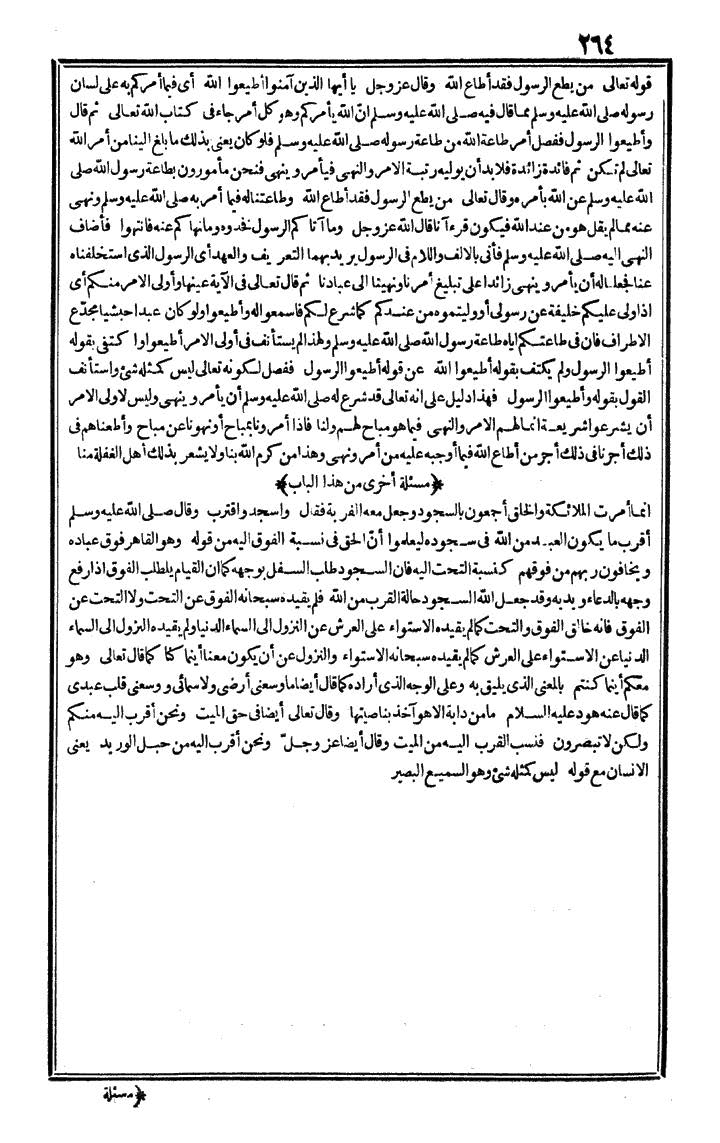 ٢٦٤
قوله تعالى من يطع الرسول فقد أطاع الله وقال عز وجل يا أيها الذين آمنوا أطيعوا الله أى فيما أمركم به على لسان
رسوله صلى الله عليه وسلم مما قال فيه صلى الله عليه وسلم انّ الله يأمركم وهو كل أمر جاء فى كتاب الله تعالى ثم قال
وأطيعوا الرسول ففصل أمر طاعة الله من طاعة رسوله صلى الله عليه وسلم فلو كان يعنى بذلك ما بلغ الينا من أمر الله
تعالى لم تكن ثم فائدة زائدة فلابد أن يوليه رتبة الامر والنهى فيأمر وينهى فنحن مأمورون بطاعة رسول الله صلى
الله عليه وسلم عن الله بأمره وقال تعالى من يطع الرسول فقد أطاع الله وطاعتنا له فيما أمر به صلى الله عليه وسلم ونهى
عنه مما لم يقل هو من عند الله فيكون قرءآنا قال الله عز وجل وما آتاكم الرسول فخذوه وما نهاكم عنه فانتهوا فأضاف
النهى اليه صلى الله عليه وسلم فأتى بالالف واللام فى الرسول يريد بهما التعريف والعهد أى الرسول الذى استخلفناه
عنا فجعلنا له أن يأمر وينهى زائدا على تبليغ أمرنا ونهينا الى عبادنا ثم قال تعالى فى الآية عينها وأولى الامر منكم أى
اذا ولى عليكم خليفة عن رسولى أو وليتموه من عندكم كما شرع لكم فاسمعوا له وأطيعوا ولو كان عبدا حبشيا مجدّع
الاطراف فان فى طاعتكم اياه طاعة رسول الله صلى الله عليه وسلم ولهذا لم يستأنف فى أولى الامر أطيعوا واكتفى بقوله
أطيعوا الرسول ولم يكتف بقوله أطيعوا الله عن قوله أطيعوا الرسول ففصل لكونه تعالى ليس كمثله شئ واستأنف
القول بقوله وأطيعوا الرسول فهذا دليل على انه تعالى قد شرع له صلى الله عليه وسلم أن يأمر وينهى وليس لاولى الامر
أن يشرعوا شريعة انما لهم الامر والنهى فيما هو مباح لهم ولنا فاذا أمرونا بمباح أو نهونا عن مباح وأطعناهم فى
ذلك أجرنا فى ذلك أجر من أطاع الله فيما أوجبه عليه من أمر ونهى وهذا من كرم الله بنا ولا يشعر بذلك أهل الغفلة منا
﴿مسئلة أخرى من هذا الباب﴾
انما أمرت الملائكة والخلق أجمعون بالسجود وجعل معه القربة فقال واسجد واقترب وقال صلى الله عليه وسلم
أقرب ما يكون العبد من الله فى سجوده ليعلموا أنّ الحق فى نسبة الفوق اليه من قوله وهو القاهر فوق عباده
ويخافون ربهم من فوقهم كنسبة التحت اليه فان السجود طلب السفل بوجهه كما ان القيام يطلب الفوق اذا رفع
وجهه بالدعاء ويديه وقد جعل الله السجود حالة القرب من الله فلم يقيده سبحانه الفوق عن التحت ولا التحت عن
الفوق فانه خالق الفوق والتحت كما لم يقيده الاستواء على العرش عن النزول الى السماء الدنيا ولم يقيده النزول الى السماء
الدنيا عن الاستواء على العرش كما لم يقيده سبحانه الاستواء والنزول عن أن يكون معنا أينما كنا كما قال تعالى وهو
معكم أينما كنتم بالمعنى الذى يليق به وعلى الوجه الذى أراده كما قال أيضا ما وسعنى أرضى ولا سمائى ووسعنى قلب عبدى
كما قال عنه هود عليه السلام ما من دابة الا هو آخذ بناصيتها وقال تعالى أيضا فى حق الميت ونحن أقرب اليه منكم
ولكن لا تبصرون فنسب القرب اليه من الميت وقال أيضا عز وجلّ ونحن أقرب اليه من حبل الوريد يعنى
الانسان مع قوله ليس كمثله شئ وهو السميع البصير
﴿مسئلة